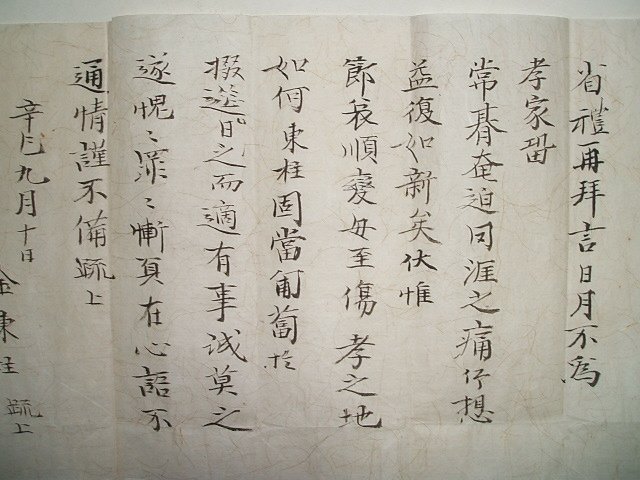 省禮再拜言日月不爲
孝家留
常朞奄迫同涯之痛仰想
益復如新矣伏惟
節哀順變毋至傷孝之地
如何東柱固當匍匐於
日之而適有事誠莫之
遂愧〻罪〻慚負在心語不
通情謹不備疏上
辛 九月十日
金東柱 疏上